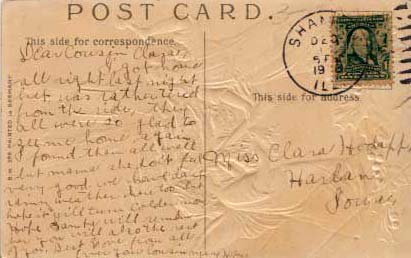 POST CARD.
This side for correspondence.
This side for address.
Dear Cousin Clara,
I got home
all right last night
but was rather tired
from the ride. They
all were so glad to
see me home again
I found them all well
but mama she
very good we have had
rainy weather here too but
hope it will turn colder now
Hope family will
you well also the rest
of you. Best love from all
your cousin
Miss Clara
Harlan
Iowa
SHAN
DEC
5 PM
19
ILL
PRINTED IN GERMANY